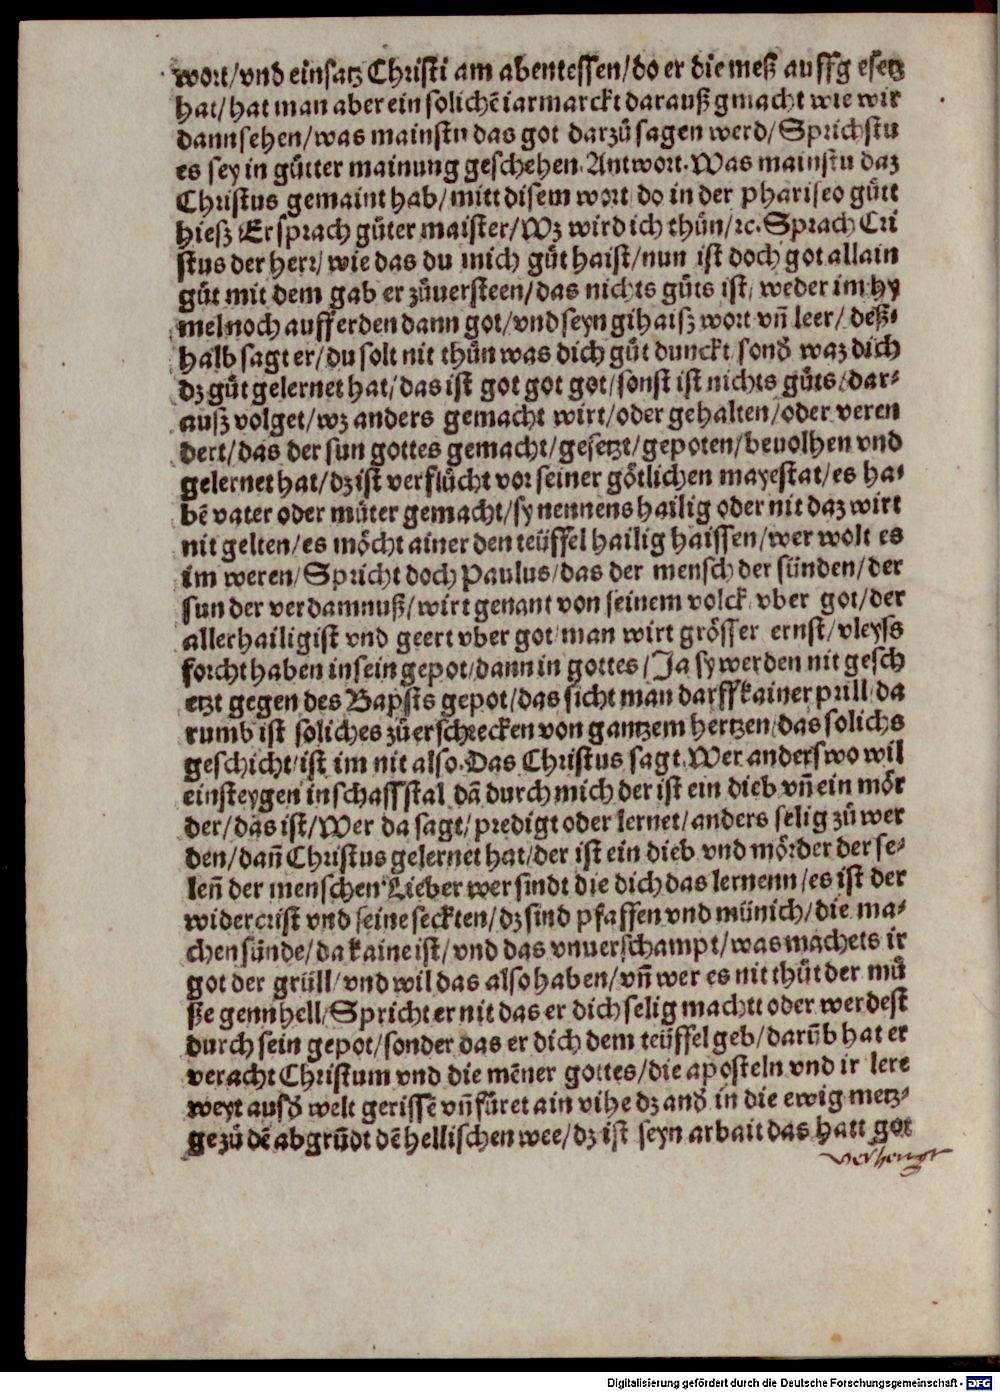 wort/vnd einsatz Christi am abentessen/do er die meß auffg esetz
hat/hat man aber ein solichē iarmarckt darauß gmacht wie wir
dann sehen/was mainstu das got darzů sagen werd/Sprichstu
es sey in gůtter mainung geschehen. Antwort. Was mainstu daz
Christus gemaint hab/mitt disem wort do in der phariseo gůtt
hiesz Er sprach gůter maister/Wz wird ich thůn/ꝛc. Sprach Cri
stus der herr/wie das du mich gůt haist/nun ist doch got allain
gůt mit dem gab er zůuersteen/das nichts gůts ist/weder im hy
mel noch auff erden dann got/vnd seyn gihaisz wort vñ leer/deß⸗
halb sagt er/du solt nit thůn was dich gůt dunckt/sond̄ waz dich
dz gůt gelernet hat/das ist got got got/sonst ist nichts gůts/dar⸗
ausz volget/wz anders gemacht wirt/oder gehalten/oder veren
dert/das der sun gottes gemacht/gesetzt/gepoten/beuolhen vnd
gelernet hat/dz ist verflůcht vor seiner götlichen mayestat/es ha⸗
bē vater oder můter gemacht/sy nennens hailig oder nit daz wirt
nit gelten/es möcht ainer den teüffel hailig haissen/wer wolt es
im weren/Spricht doch Paulus/das der mensch der sünden/der
sun der verdamnuß/wirt genant von seinem volck vber got/der
allerhailigist vnd geert vber got/man wirt grösser ernst/vleyss
forcht haben in sein gepot/dann in gottes/Ja sy werden nit gesch
etzt gegen des Bapsts gepot/das sicht man darff kainer prill/da
rumb ist soliches zů erschrecken von gantzem hertzen/das solichs
geschicht/ist im nit also. Das Christus sagt. Wer anderswo wil
einsteygen in schaffstal dā durch mich der ist ein dieb vñ ein mör
der/das ist/Wer da sagt/predigt oder lernet/anders selig zů wer
den/dañ Christus gelernet hat/der ist ein dieb vnd mörder der se⸗
leñ der menschen Lieber wer sindt die dich das lernenn/es ist der
widercrist vnd seine seckten/dz sind pfaffen vnd münich/die ma⸗
chen sünde/da kaine ist/vnd das vnuerschampt/was machets ir
got der grüll/vnd wil das also haben/vñ wer es nit thůt der mů
ße genn hell/Spricht er nit das er dich selig machtt oder werdest
durch sein gepot/sonder das er dich dem teüffel geb/darūb hat er
veracht Christum vnd die mēner gottes/die aposteln vnd ir lere
weyt ausd̄ welt gerissē vñ füret ain vihe dz and̄ in die ewig metz⸗
ge zů dē abgrūdt dē hellischen wee/dz ist seyn arbait das hatt got
verhengt
Digitalisierung gefördert durch die Deutsche Forschungsgemeinschaft - DFG